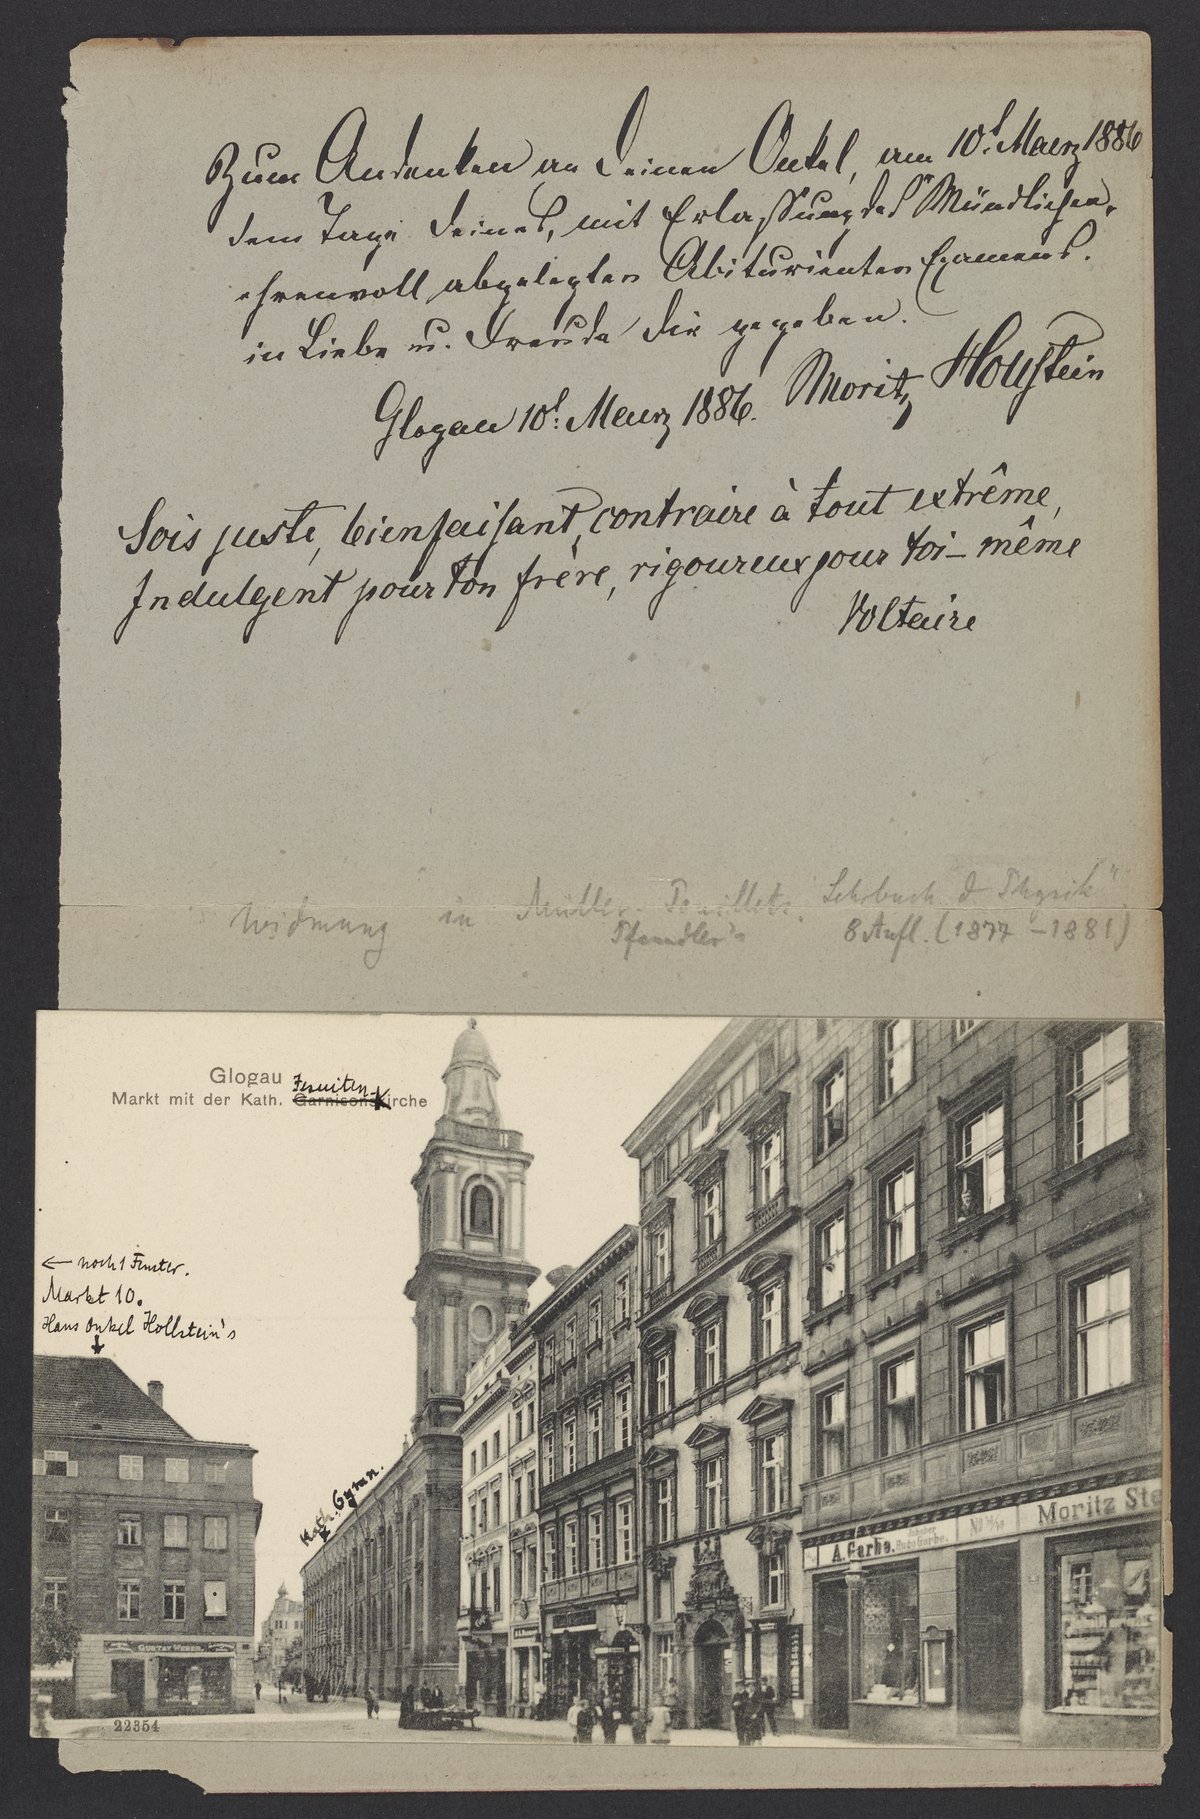 Zum Andenken an Deinen Onkel, am 10t. Maerz 1886
dem Tage Deines, mit Erlassung des Mündlichen,
ehrenvoll abgelegten Abiturienten Examens.
in Liebe u. Freude Dir gegeben.
Moritz Hollstein
Glogau 10t. Maerz 1886.
Sois juste, bienfaisant, contraire à tout extrême,
Indulgent pour ton frère, rigoureux pour toi-même
Voltaire
Widmung in Müller-Pouillets. Lehrbuch d. Physik"
Pfaundler's 8 Aufl. (1877-1881)
Glogau
Jesuiten
Markt mit der Kath. GarnisonsKirche
← noch 1 Fenster.
Markt 10.
Haus Onkel Hollstein's
Kath. Gymn.
Moritz Ste
A. Garbe.
Inhaber
Hugo Garbe.
GUSTAV WEBER.
22354